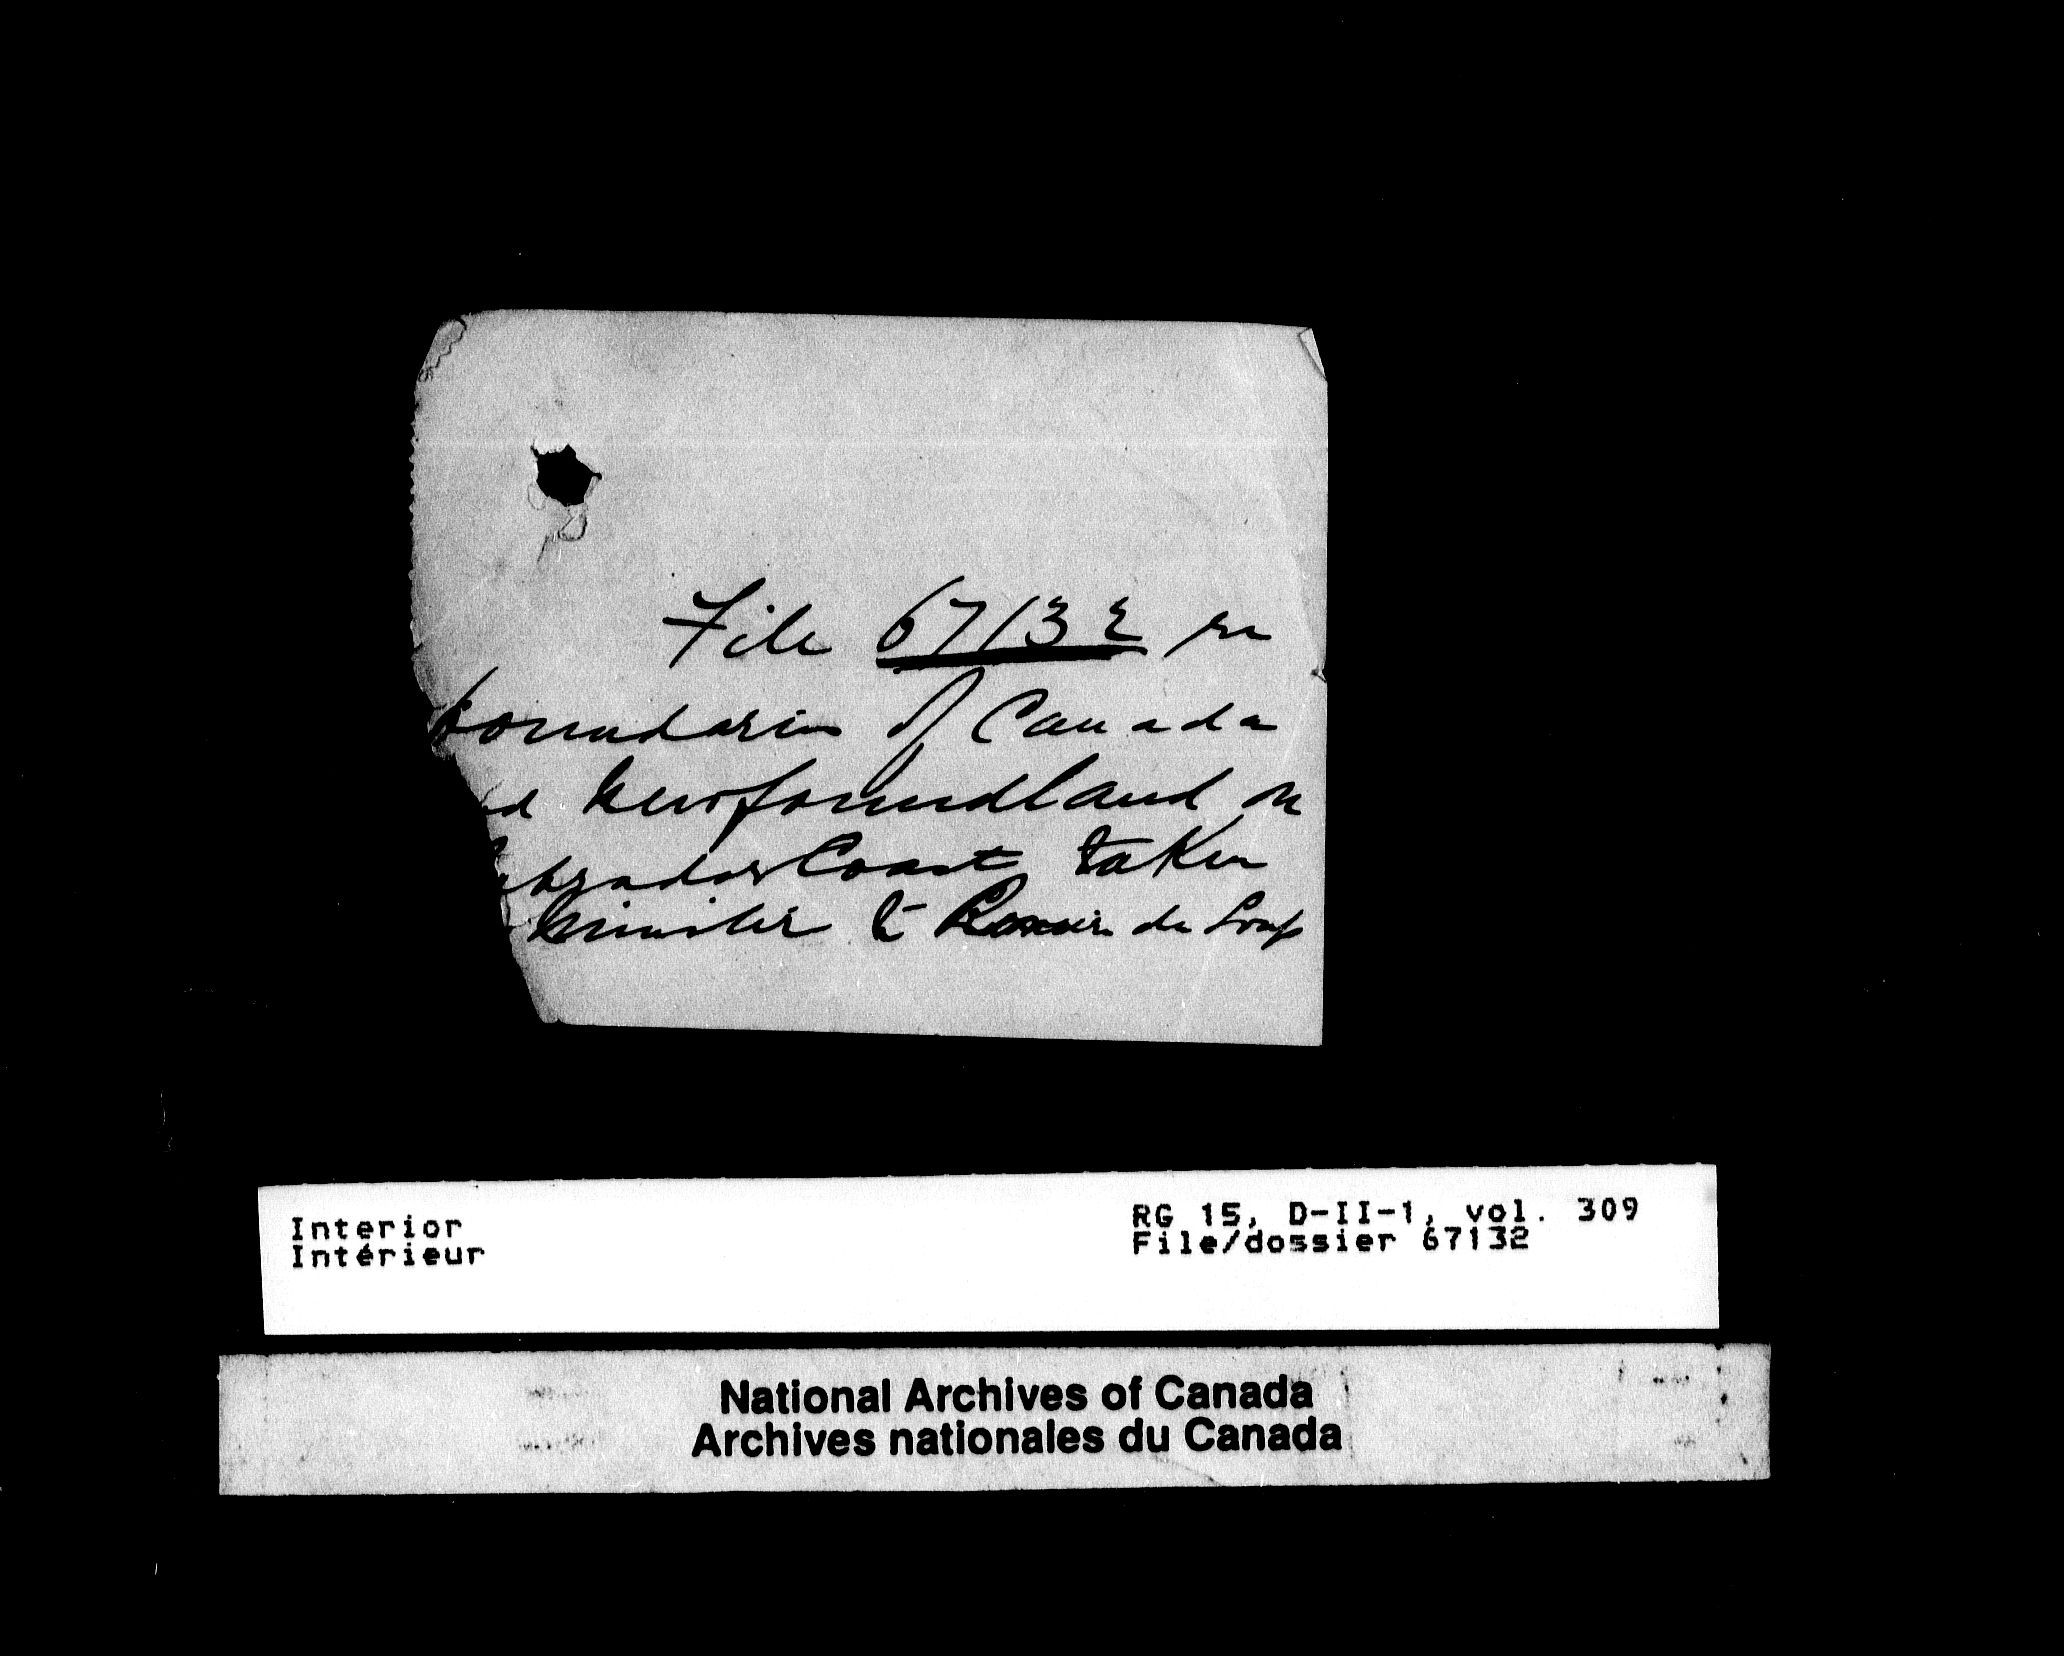 File 67132 re
boundaries of Canada
nd Newfoundland on
abrador Coast taken
Minister to Riviere du Loup
Interior
Intérieur
RG 15, D-II-1, vol. 309
File/dossier 67132
National Archives of Canada
Archives nationales du Canada